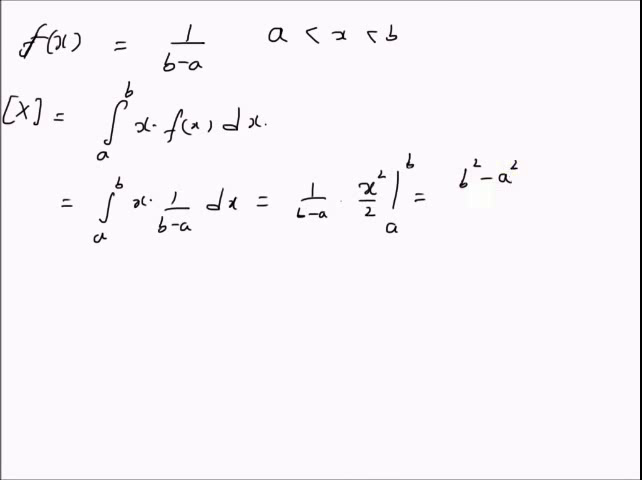 f(x) = 1/(b-a) a < x < b
[X] = ∫_a^b x. f(x) dx.
= ∫_a^b x. 1/(b-a) dx = 1/(b-a) . x²/2 |_a^b = b² - a²